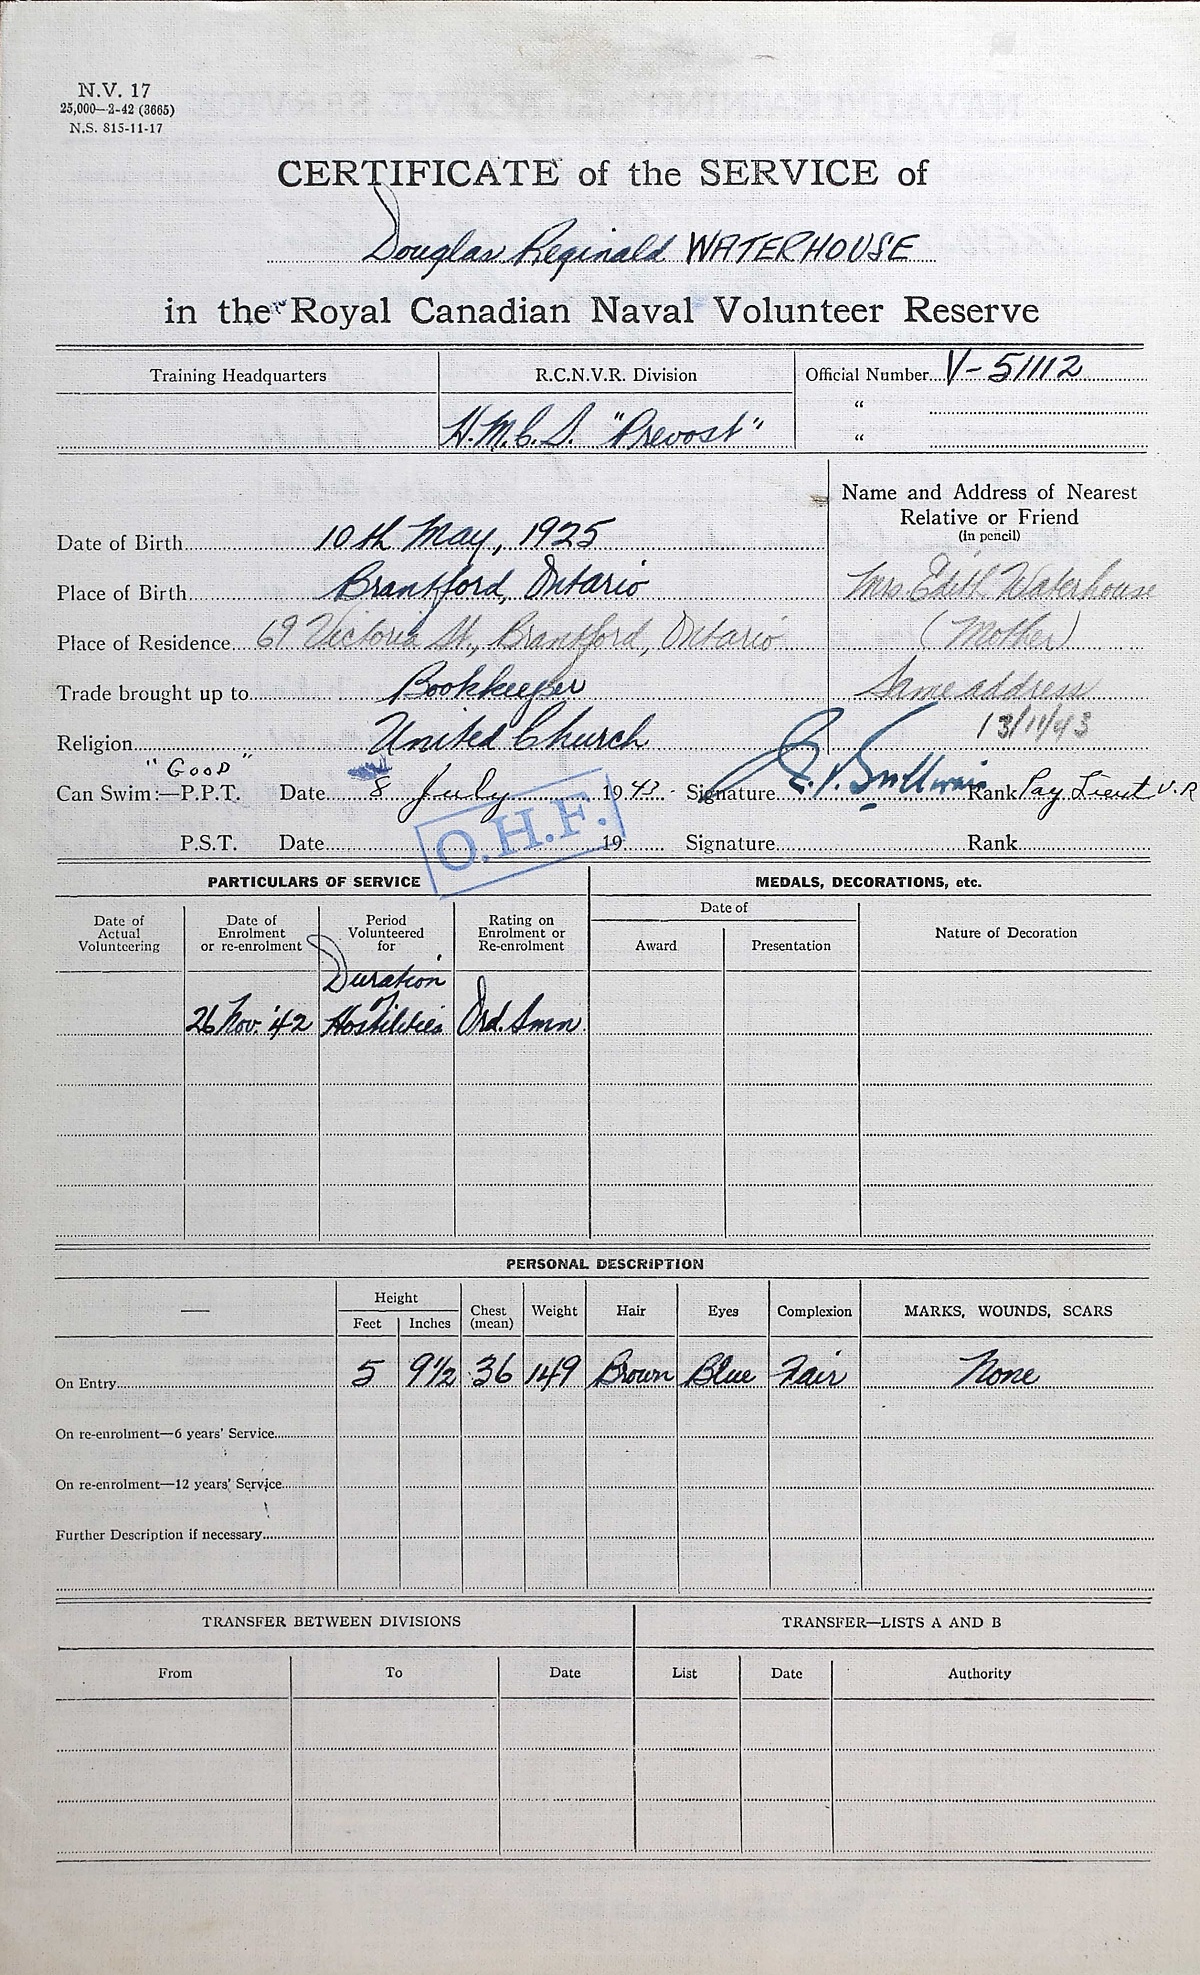 N.V. 17
25,000—2-42 (3665)
N.S. 815-11-17
CERTIFICATE of the SERVICE of
Douglas Reginald WATERHOUSE
in the Royal Canadian Naval Volunteer Reserve
Training Headquarters
R.C.N.V.R. Division
Official Number V-51112
H.M.C.S. "Prevost"
“
“
Name and Address of Nearest
Relative or Friend
(in pencil)
Date of Birth 10th May, 1925
Place of Birth Brantford, Ontario
Mrs. Edith Waterhouse
Place of Residence 69 Victoria St., Brantford, Ontario
(Mother)
Trade brought up to Bookkeeper
Same address
13/11/43
Religion United Church
"GOOD"
Can Swim:—P.P.T. Date 8 July 1943 Signature Rank Pay Lieut V.R
P.S.T. Date 19 Signature Rank
O.H.F.
PARTICULARS OF SERVICE
MEDALS, DECORATIONS, etc.
Date of
Actual
Volunteering
Date of
Enrolment
or re-enrolment
Period
Volunteered
for
Rating on
Enrolment or
Re-enrolment
Date of
Award
Presentation
Nature of Decoration
26 Nov. '42
Duration
of
Hostilities
Ord. Smn.
PERSONAL DESCRIPTION
—
Height
Feet
Inches
Chest
(mean)
Weight
Hair
Eyes
Complexion
MARKS, WOUNDS, SCARS
On Entry 5 9½ 36 149 Brown Blue Fair None
On re-enrolment—6 years' Service
On re-enrolment—12 years' Service
Further Description if necessary
TRANSFER BETWEEN DIVISIONS
TRANSFER—LISTS A AND B
From
To
Date
List
Date
Authority